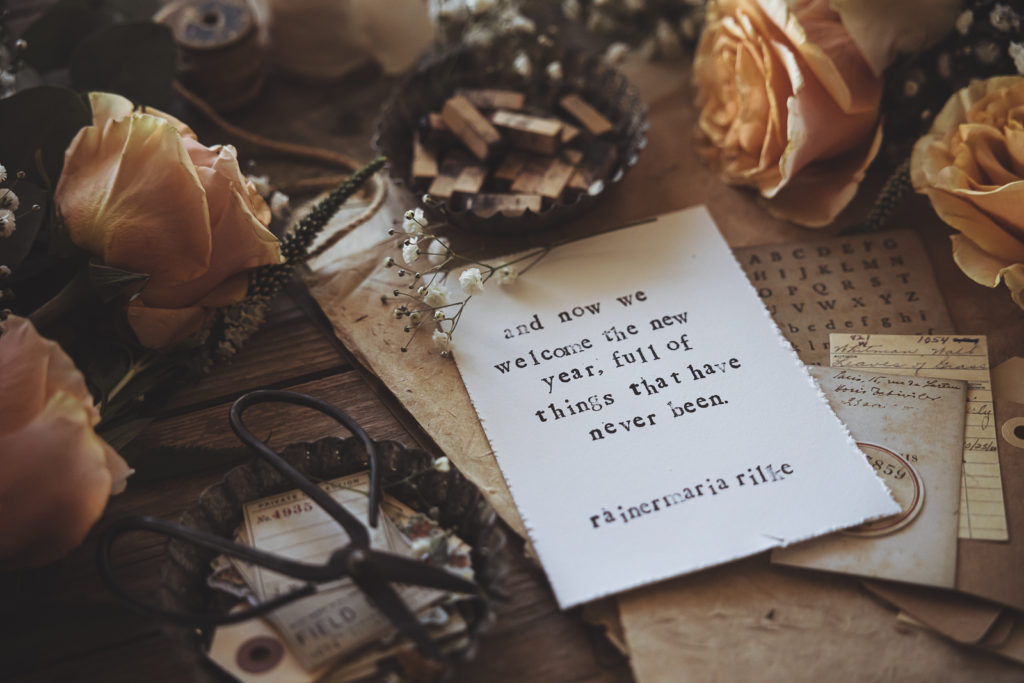 and now we
welcome the new
year, full of
things that have
never been.
rainermaria rilke
A B C D E F G
H I J K L M N
O P Q R S T U
V W X Y Z
a b c d e f g
1054
859
PRIVATE AUCTION
No. 4935
FIELD